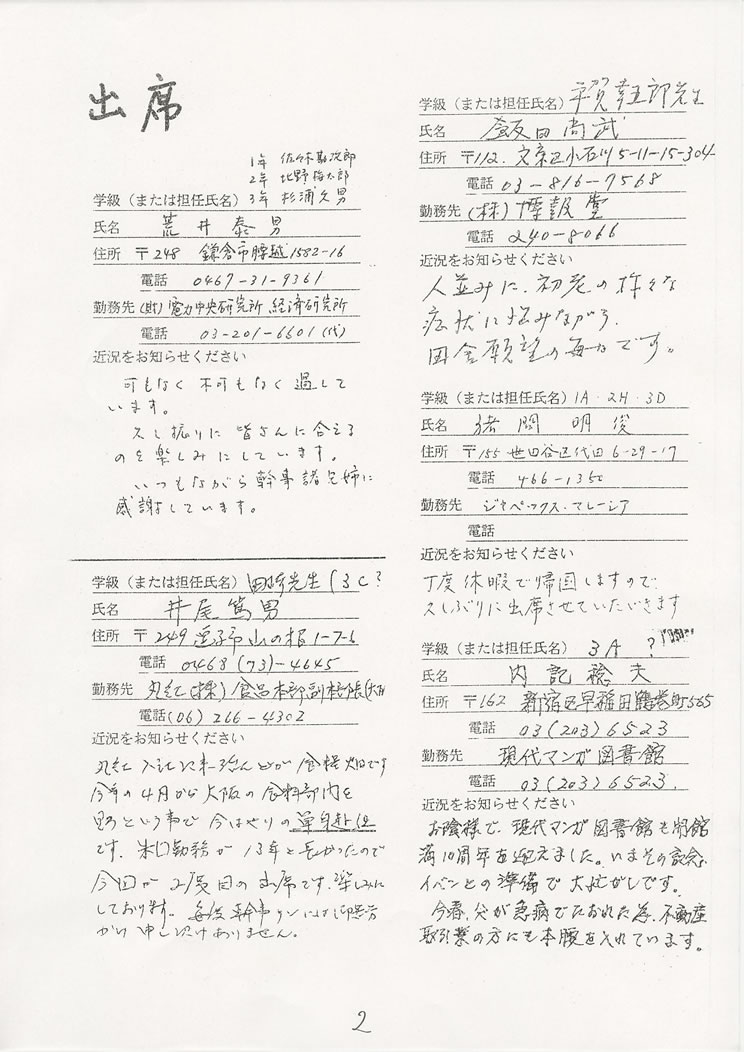 出席
1年 佐々木勘次郎
2年 北野梅太郎
学級（または担任氏名）3年 杉浦久男
氏名 荒井泰男
住所 〒248 鎌倉市腰越1582-16
電話 0467-31-9361
勤務先 (財)電力中央研究所 経済研究所
電話 03-201-6601(代)
近況をお知らせください
可もなく 不可もなく 過して
います。
久し振りに 皆さんに会える
のを楽しみにしています。
いつもながら幹事諸兄姉に
感謝しています。
学級（または担任氏名）田崎先生(3C?
氏名 井尾篤男
住所 〒249 逗子市山の根1-7-6
電話 0468(73)-4645
勤務先 丸紅(株)食品本部副本部長(大阪
電話(06) 266-4302
近況をお知らせください
丸紅入社以来殆んどが食糧畑です
今年の4月から大阪の食料部内を
見ろという事で今はやりの単身赴任
です。米国勤務が13年と長かったので
今回が2度目の出席です。楽しみに
しております。毎度幹事
かけ申し訳けありません。
学級（または担任氏名）平賀幸五郎先生
氏名 飯田尚武
住所 〒112. 文京区小石川5-11-15-304
電話 03-816-7568
勤務先 (株)博報堂
電話 240-8066
近況をお知らせください
人並みに、初老の様々な
症状に悩みながら、
田舎願望の毎日です。
学級（または担任氏名）1A・2H・3D
氏名 猪間明俊
住所 〒155 世田谷区代田6-29-17
電話 466-1350
勤務先 ジャペックス・マレーシア
電話
近況をお知らせください
丁度休暇で帰国しますので、
久しぶりに出席させていただきます
学級（または担任氏名）3A ?
氏名 内記稔夫
住所 〒162 新宿区早稲田鶴巻町565
電話 03(203)6523
勤務先 現代マンガ図書館
電話 03(203)6523.
近況をお知らせください
お陰様で、現代マンガ図書館も開館
満10周年を迎えました。いまその記念
イベントの準備で大忙がしです。
今春、父が急病でたおれた為、不動産
取引業の方にも本腰を入れています。
2